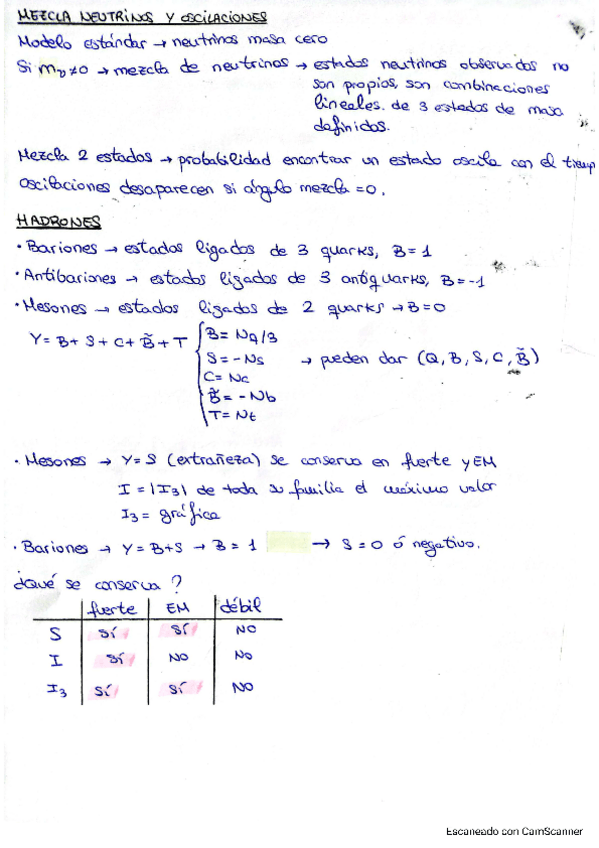 MEZCLA NEUTRINOS Y OSCILACIONES
Modelo estándar → neutrinos masa cero
Si mν≠0 → mezcla de neutrinos → estados neutrinos observados no
son propios, son combinaciones
lineales. de 3 estados de masa
definidos.
Mezcla 2 estados → probabilidad encontrar un estado oscila con el tiemp
oscilaciones desaparecen si ángulo mezcla = 0.
HADRONES
· Bariones → estados ligados de 3 quarks, B = 1
· Antibariones → estados ligados de 3 antiquarks, B = -1
· Mesones → estados ligados de 2 quarks → B = 0
Y = B + S + C + B̃ + T { B = NQ/3
S = - Ns → pueden dar (Q, B, S, C, B̃)
C = Nc
B̃ = - Nb
T = Nt
· Mesones → Y = S (extrañeza) se conserva en fuerte y EM
I = |I3| de toda su familia el máximo valor
I3 = gráfica
· Bariones → Y = B+S → B = 1 → S = 0 ó negativo.
¿Qué se conserva?
fuerte EM débil
S SÍ SÍ NO
I SÍ NO NO
I3 SÍ SÍ NO
Escaneado con CamScanner